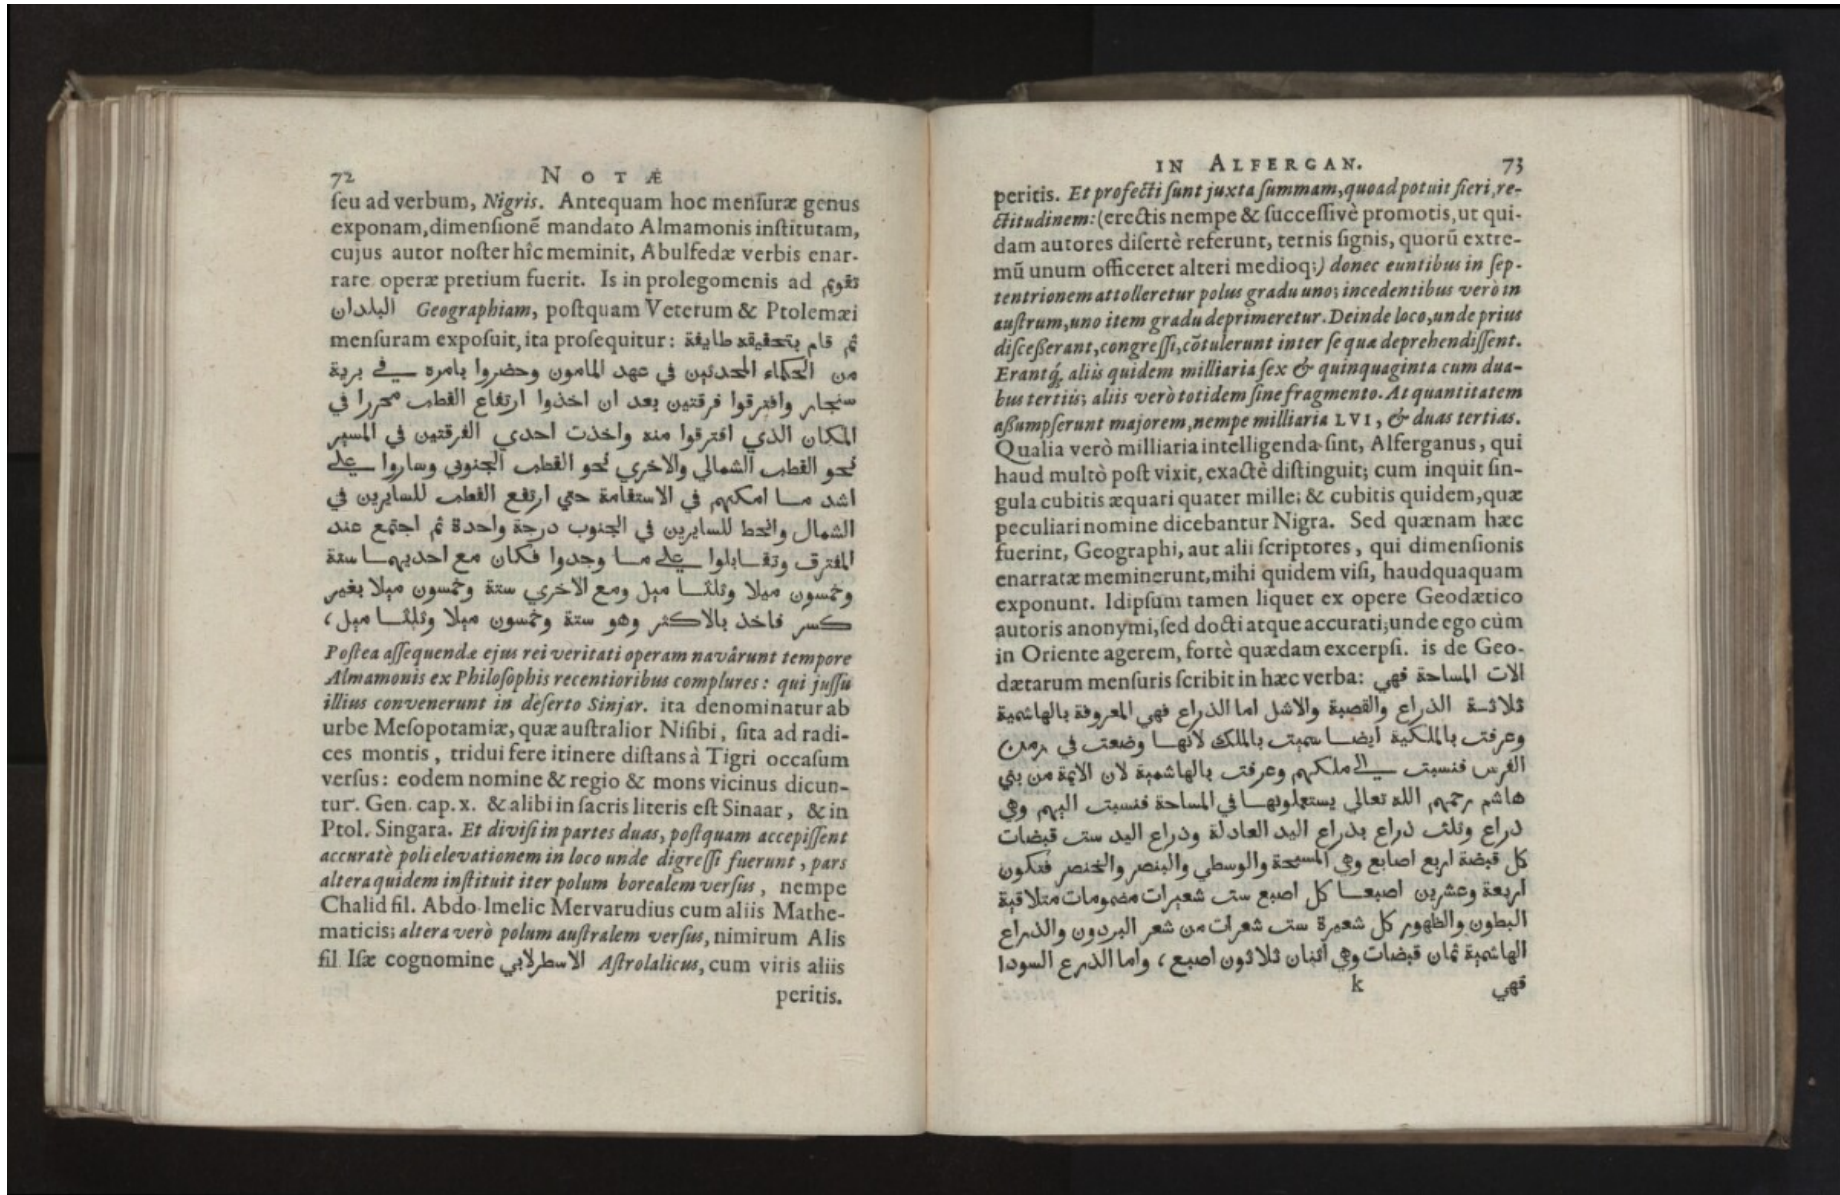 72 NOTÆ
ſeu ad verbum, Nigris. Antequam hoc menſuræ genus
exponam, dimenſionē mandato Almamonis inſtitutam,
cujus autor noſter hîc meminit, Abulfedæ verbis enar-
rare operæ pretium fuerit. Is in prolegomenis ad تقويم
البلدان Geographiam, poſtquam Veterum & Ptolemæi
menſuram expoſuit, ita proſequitur: ثم قام بتحقيقه طايفة
من الحكماء المحدثين في عهد المامون وحضروا بامره في برية
سنجار وافترقوا فرقتين بعد ان اخذوا ارتفاع القطب محررا في
المكان الذي افترقوا منه واخذت احدي الفرقتين في المسير
نحو القطب الشمالي والاخري نحو القطب الجنوبي وساروا علي
اشد ما امكنهم في الاستقامة حتي ارتفع القطب للسايرين في
الشمال وانحط للسايرين في الجنوب درجة واحدة ثم اجتمع عند
المفترق وتقابلوا علي ما وجدوا فكان مع احديهما ستة
وخمسون ميلا وثلثا ميل ومع الاخري ستة وخمسون ميلا بغير
كسر فاخذ بالاكثر وهو ستة وخمسون ميلا وثلثا ميل،
Poſtea aſſequendæ ejus rei veritati operam navârunt tempore
Almamonis ex Philoſophis recentioribus complures: qui juſſu
illius convenerunt in deſerto Sinjar. ita denominatur ab
urbe Meſopotamiæ, quæ auſtralior Niſibi, ſita ad radi-
ces montis, tridui fere itinere diſtans à Tigri occaſum
verſus: eodem nomine & regio & mons vicinus dicun-
tur. Gen. cap. x. & alibi in ſacris literis eſt Sinaar, & in
Ptol. Singara. Et diviſi in partes duas, poſtquam accepiſſent
accuratè poli elevationem in loco unde digreſſi fuerunt, pars
altera quidem inſtituit iter polum borealem verſus, nempe
Chalid fil. Abdo-lmelic Mervarudius cum aliis Mathe-
maticis; altera verò polum auſtralem verſus, nimirum Alis
fil Iſæ cognomine الاسطرلابي Aſtrolalicus, cum viris aliis
peritis.
IN ALFERGAN. 73
peritis. Et profecti ſunt juxta ſummam, quoad potuit fieri, re-
ctitudinem: (erectis nempe & ſucceſſivè promotis, ut qui-
dam autores diſertè referunt, ternis ſignis, quorū extre-
mū unum officeret alteri medioq;) donec euntibus in ſep-
tentrionem attolleretur polus gradu uno; incedentibus verò in
auſtrum, uno item gradu deprimeretur. Deinde loco, unde prius
diſceßerant, congreſſi, cōtulerunt inter ſe quæ deprehendiſſent.
Erantq́; aliis quidem milliaria ſex & quinquaginta cum dua-
bus tertiis; aliis verò totidem ſine fragmento. At quantitatem
aßumpſerunt majorem, nempe milliaria LVI, & duas tertias.
Qualia verò milliaria intelligenda ſint, Alferganus, qui
haud multò poſt vixit, exactè diſtinguit; cum inquit ſin-
gula cubitis æquari quater mille; & cubitis quidem, quæ
peculiari nomine dicebantur Nigra. Sed quænam hæc
fuerint, Geographi, aut alii ſcriptores, qui dimenſionis
enarratæ meminerunt, mihi quidem viſi, haudquaquam
exponunt. Idipſum tamen liquet ex opere Geodætico
autoris anonymi, ſed docti atque accurati; unde ego cùm
in Oriente agerem, fortè quædam excerpſi. is de Geo-
dætarum menſuris ſcribit in hæc verba: الات المساحة فهي
ثلاثة الذراع والقصبة والاشل اما الذراع فهي المعروفة بالهاشمية
وعرفت بالملكية ايضا سميت بالملك لانها وضعت في زمن
الفرس فنسبت الي ملكهم وعرفت بالهاشمية لان الايمة من بني
هاشم رحمهم الله تعالي يستعملونها في المساحة فنسبت اليهم وهي
ذراع وثلث ذراع بذراع اليد العادلة وذراع اليد ست قبضات
كل قبضة اربع اصابع وهي المسبحة والوسطي والبنصر والخنصر فتكون
اربعة وعشرين اصبعا كل اصبع ست شعيرات مضمومات متلاقية
البطون والظهور كل شعيرة ست شعرات من شعر البردون والذراع
الهاشمية ثمان قبضات وهي اثنان ثلاثون اصبع، واما الذرع السودا
k فهي